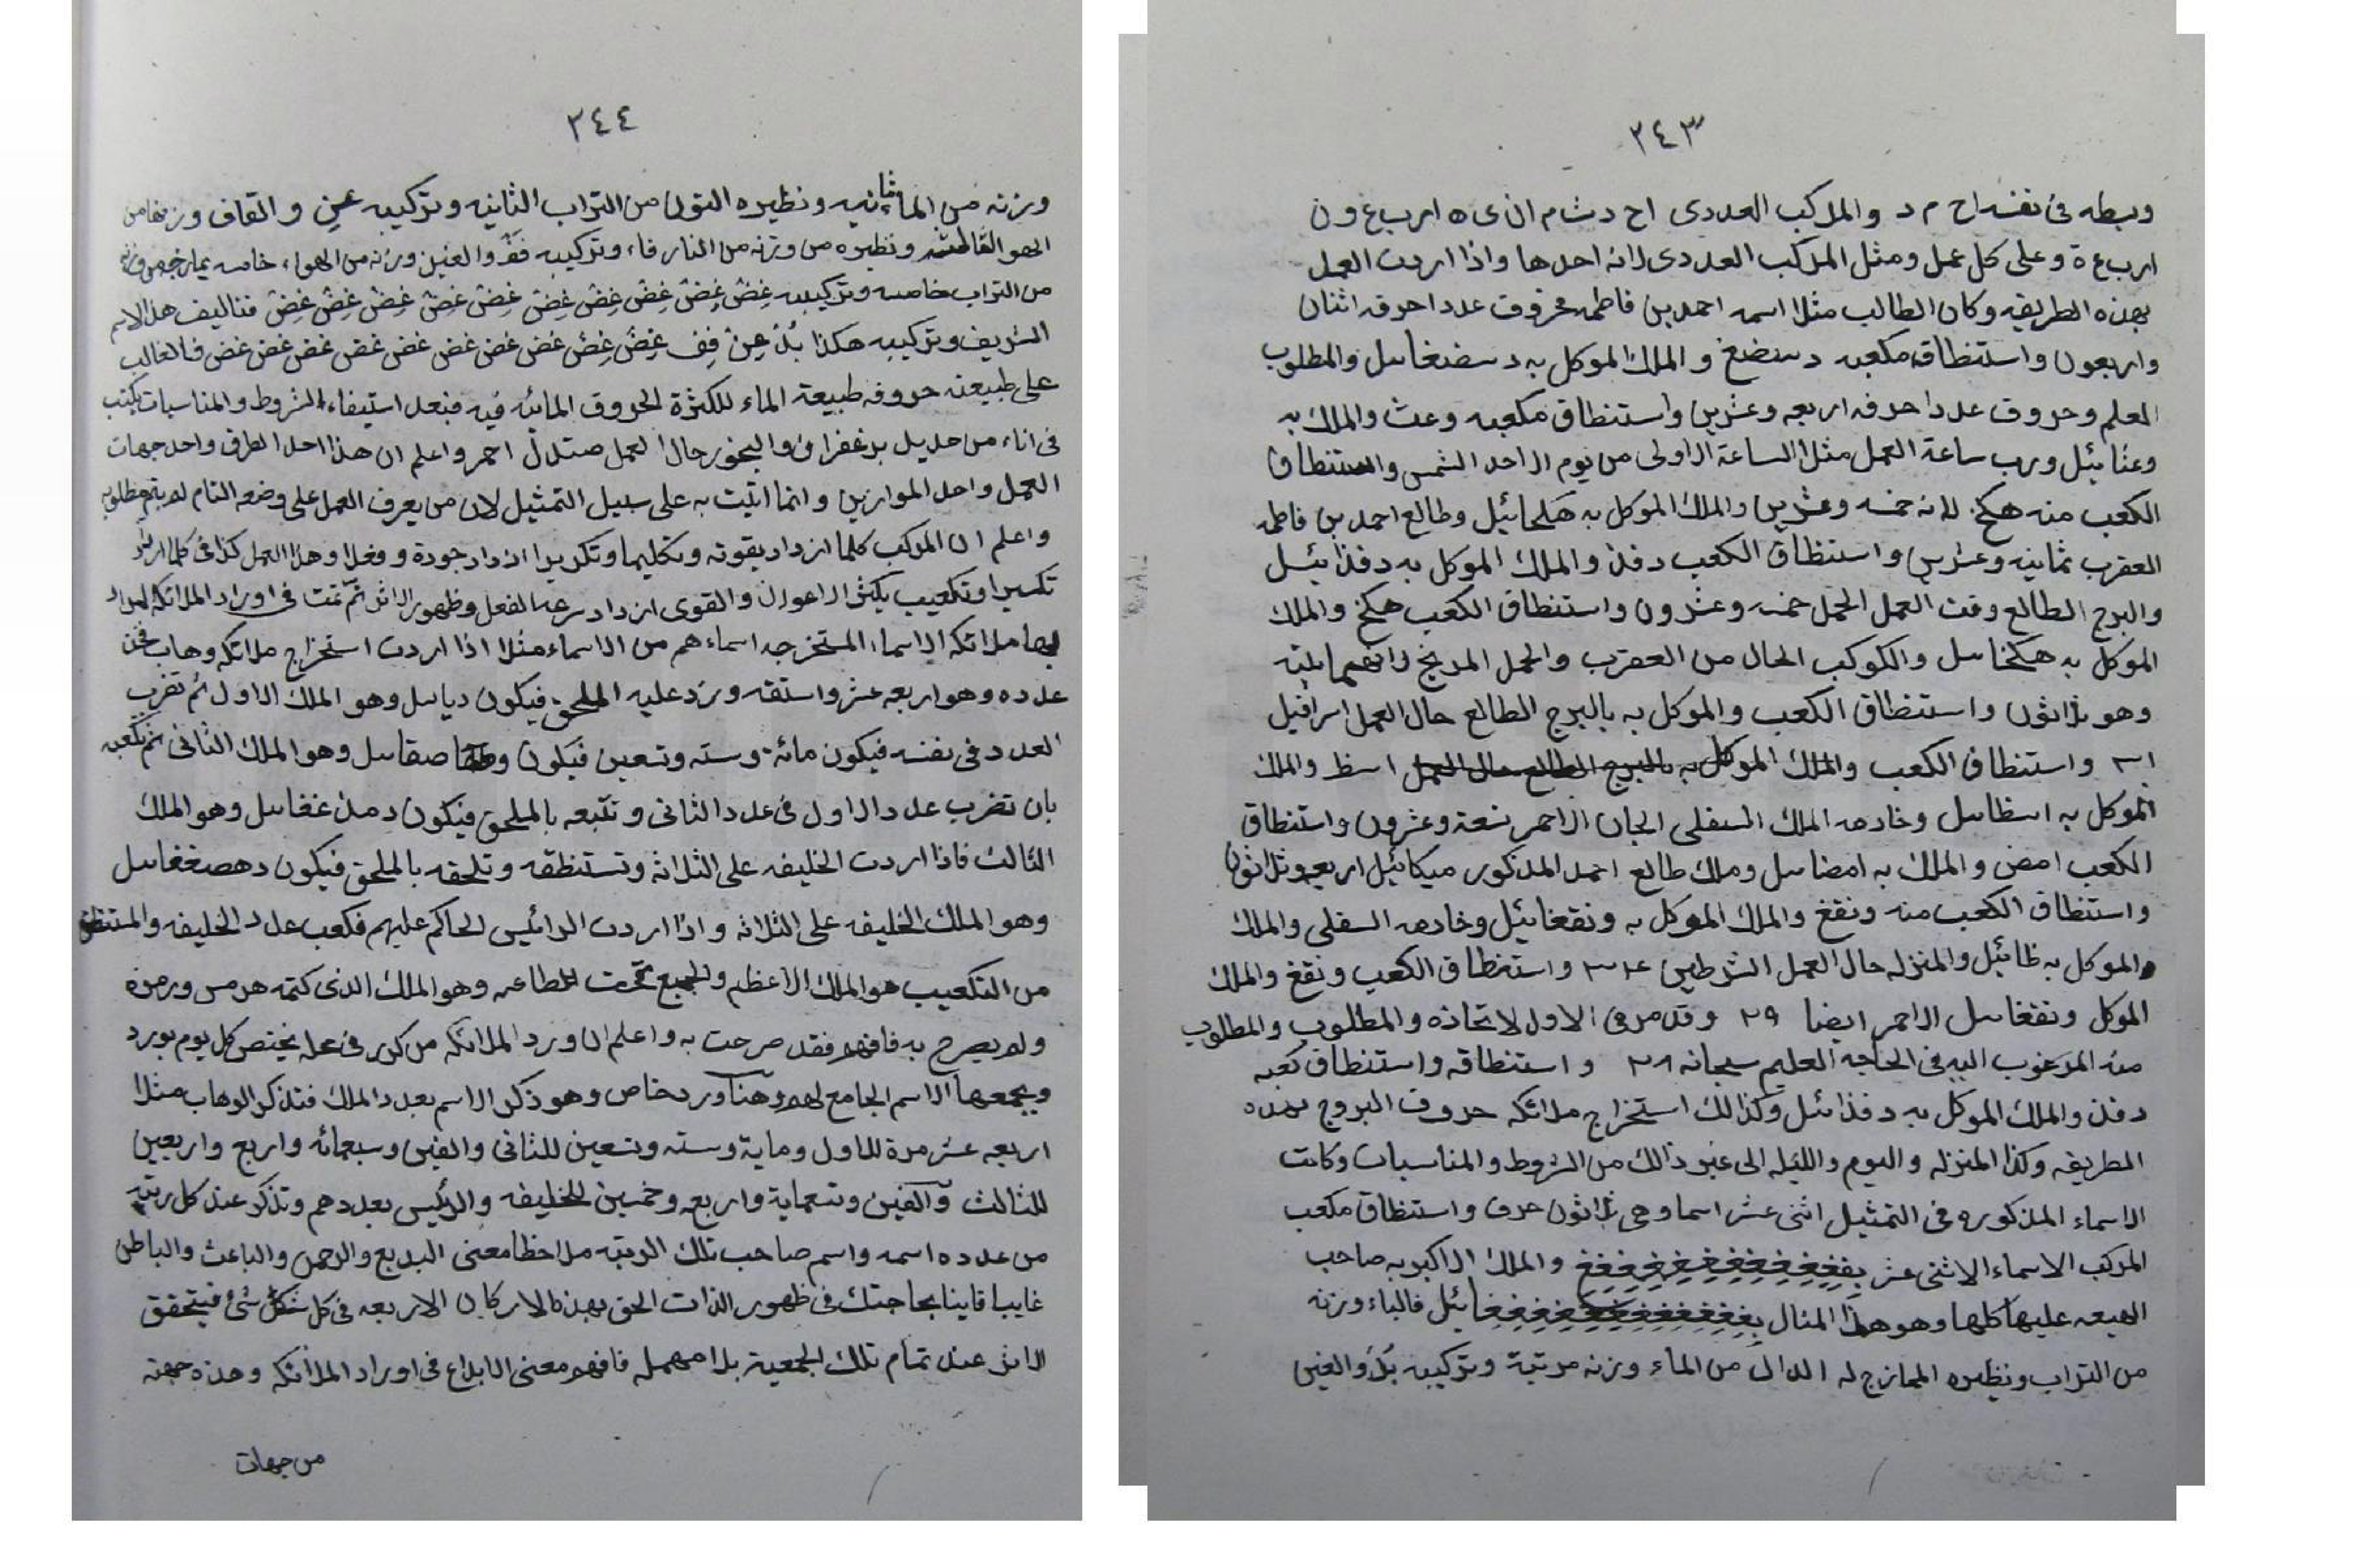 ٢٤٣
وبسطه فى نفسه اح م د والمركب العددى اح د ث م ان ى ه ارب ع ون
ارب ع ة وعلى كل عمل ومثل المركب العددى لانه احدها واذا اردت العمل
بهذه الطريقه وكان الطالب مثلا اسمه احمد بن فاطمه فحروف عدد احرفه اثنان
واربعون واستنطاق مكعبه دسضغ والملك الموكل به دسضغائيل والمطلوب
المعلم وحروف عدد احرفه اربعه وعشرين واستنطاق مكعبه وعث والملك به
وعثائيل ورب ساعة العمل مثلا الساعة الاولى من يوم الاحد الشمس واستنطاق
الكعب منه هكخ لانه خمسه وعشرين والملك الموكل به هكخائيل وطالع احمد بن فاطمه
العقرب ثمانيه وعشرين واستنطاق الكعب دفذ والملك الموكل به دفذائيل
والبرج الطالع وقت العمل الحمل خمسه وعشرون واستنطاق الكعب هكخ والملك
الموكل به هكخائيل والكوكب الحال من العقرب والحمل المريخ لانهما بيته
وهو ثلاثون واستنطاق الكعب والموكل به بالبرج الطالع حال العمل اسرافيل
٣١ واستنطاق الكعب والملك الموكل به بالبرج الطالع حال العمل اسظ والملك
الموكل به اسظائيل وخادمه الملك السفلى الجان الاحمر تسعة وعشرون واستنطاق
الكعب امض والملك به امضائيل وملك طالع احمد المذكور ميكائيل اربعه وثلاثون
واستنطاق الكعب منه ونقغ والملك الموكل به ونقغائيل وخادمه السفلى والملك
والموكل به ظائيل والمنزله حال العمل الشرطين واستنطاق الكعب ونقغ والملك
الموكل ونقغائيل الاحمر ايضا ٢٩ وقد مر فى الاول لاتحاده والمطلوب والمطلوب
منه المرغوب اليه فى الحاجه العليم سبحانه ٢٨ واستنطاقه واستنطاق كعبه
دفذ والملك الموكل به دفذائيل وكذالك استخراج ملائكه حروف البروج بهذه
الطريقه وكذا المنزله واليوم والليله الى غير ذالك من الشروط والمناسبات وكانت
الاسماء المذكوره فى التمثيل اثنى عشر اسما وهى ثلاثون حرف واستنطاق مكعب
المركب الاسماء الاثنى عشر والملك الاكبر به صاحب
الهيعه عليها كلها وهو هذا المثال فالباء وزنه
من التراب ونظيره الممازج له الدال من الماء وزنه مرتبة وتركيبه بُدْ والغين
٢٤٤
وزنه من الماء ثانيه ونظيره النون من التراب الثانيه وتركيبه غن والقاف وزنها من
الهوا الثالثه ونظيره من وزنه من النار فاء وتركيبه فق والغين وزنه من الهواء خامسه يمازجه ض وزنه
من التراب خامسه وتركيبه غِضْ غِضْ غِضْ غِضْ غِضْ غِضْ غِضْ غِضْ غِضْ غِضْ فتاليف هذا الاسم
الشريف وتركيبه هكذا بُدْ غِنْ فِق غِضَ غِضْ غض غض غض غض غض غض غض غض فالغالب
على طبيعته حروفه طبيعة الماء للكثرة الحروف المائيه فيه فبعد استيفاء الشروط والمناسبات يكتب
فى اناء من حديل بزعفران والبخور حال العمل صندل احمر واعلم ان هذا احد الطرق واحد جهات
العمل واحد الموازين وانما اتيت به على سبيل التمثيل لان من يعرف العمل على وضعه التام لم يتم مطلوبه
واعلم ان المركب كلما ازداد بقوته وتكليما وتكريرا ازداد جودة وفعلا وهذا العمل كذا فى كلما ازداد
تكسيرا وتكعيب يكثر الاعوان والقوى ازداد سرعه الفعل وظهور الاثر ثم تمت فى اوراد الملائكه المراد
بها ملائكه الاسماء المستخرجه اسماءهم من الاسماء مثلا اذا اردت استخراج ملائكه وهاب فخذ
عدده وهو اربعه عشر واستنقه وزد عليه الملحق فيكون ديائيل وهو الملك الاول ثم تضرب
العدد فى نفسه فيكون مائة وستة وتسعين فيكون وصقائيل وهو الملك الثانى ثم تكعبه
بان تضرب عدد الاول فى عدد الثانى وتتبعه بالملحق فيكون دمذغغائيل وهو الملك
الثالث فاذا اردت الخليفه على الثلاثة وتستنطقه وتلحقه بالملحق فيكون دهصغغائيل
وهو الملك الخليفه على الثلاثه واذا اردت الرائيس الحاكم عليهم فكعب عدد الخليفه والمستنطق
من التكعيب هو الملك الاعظم والجميع تحت طاعته وهو الملك الذى كتمه هرمس ورمزه
ولم يصرح به فافهم فقد صرحت به واعلم ان ورد الملائكه من كرر فى عمله يختص كل يوم بورد
ويجمعها الاسم الجامع لهم وهنا ورد خاص وهو ذكر الاسم بعدد الملك فتذكر الوهاب مثلا
اربعه عشر مرة للاول وماية وسته وتسعين للثانى والفين وسبعمائه واربع واربعين
للثالث والفين وتسعماية واربعه وخمسين للخليفه والرئيس بعددهم وتذكر عند كل رتبة
من عدده اسمه واسم صاحب تلك الرتبه ملاحظا معنى البديع والرحمن والباعث والباطن
غايبا فاينا بحاجتك فى ظهور الذات الحق بهذه الاركان الاربعه فى كل شكل شئ فيتحقق
الاثر عند تمام تلك الجمعية بلا مهمله فافهم معنى الابداع فى اوراد الملائكه وهذه جهته
من جهات